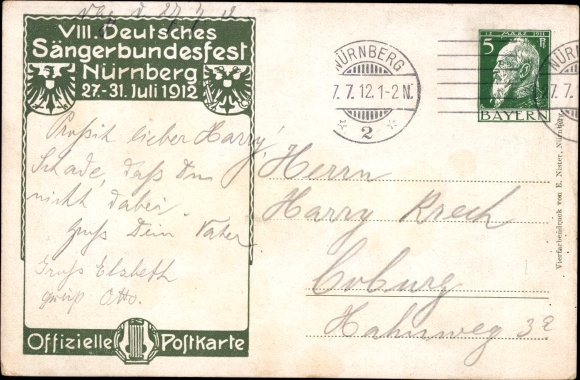 VIII. Deutsches
Sängerbundesfest
Nürnberg
27.-31. Juli 1912
Prosit lieber Harry!
Schade, daß Du
nicht dabei.
Gruß Dein Vater
Gruß Elsbeth
Otto.
Offizielle Postkarte
NÜRNBERG
7. 7. 12. 1-2 N.
2
12 MÄRZ 1911
5 Pf
BAYERN
NÜR
7. 7.
Herrn
Harry Krech
Coburg
Hahnweg 3a
Vierfarbendruck von E. Nister, Nürnberg